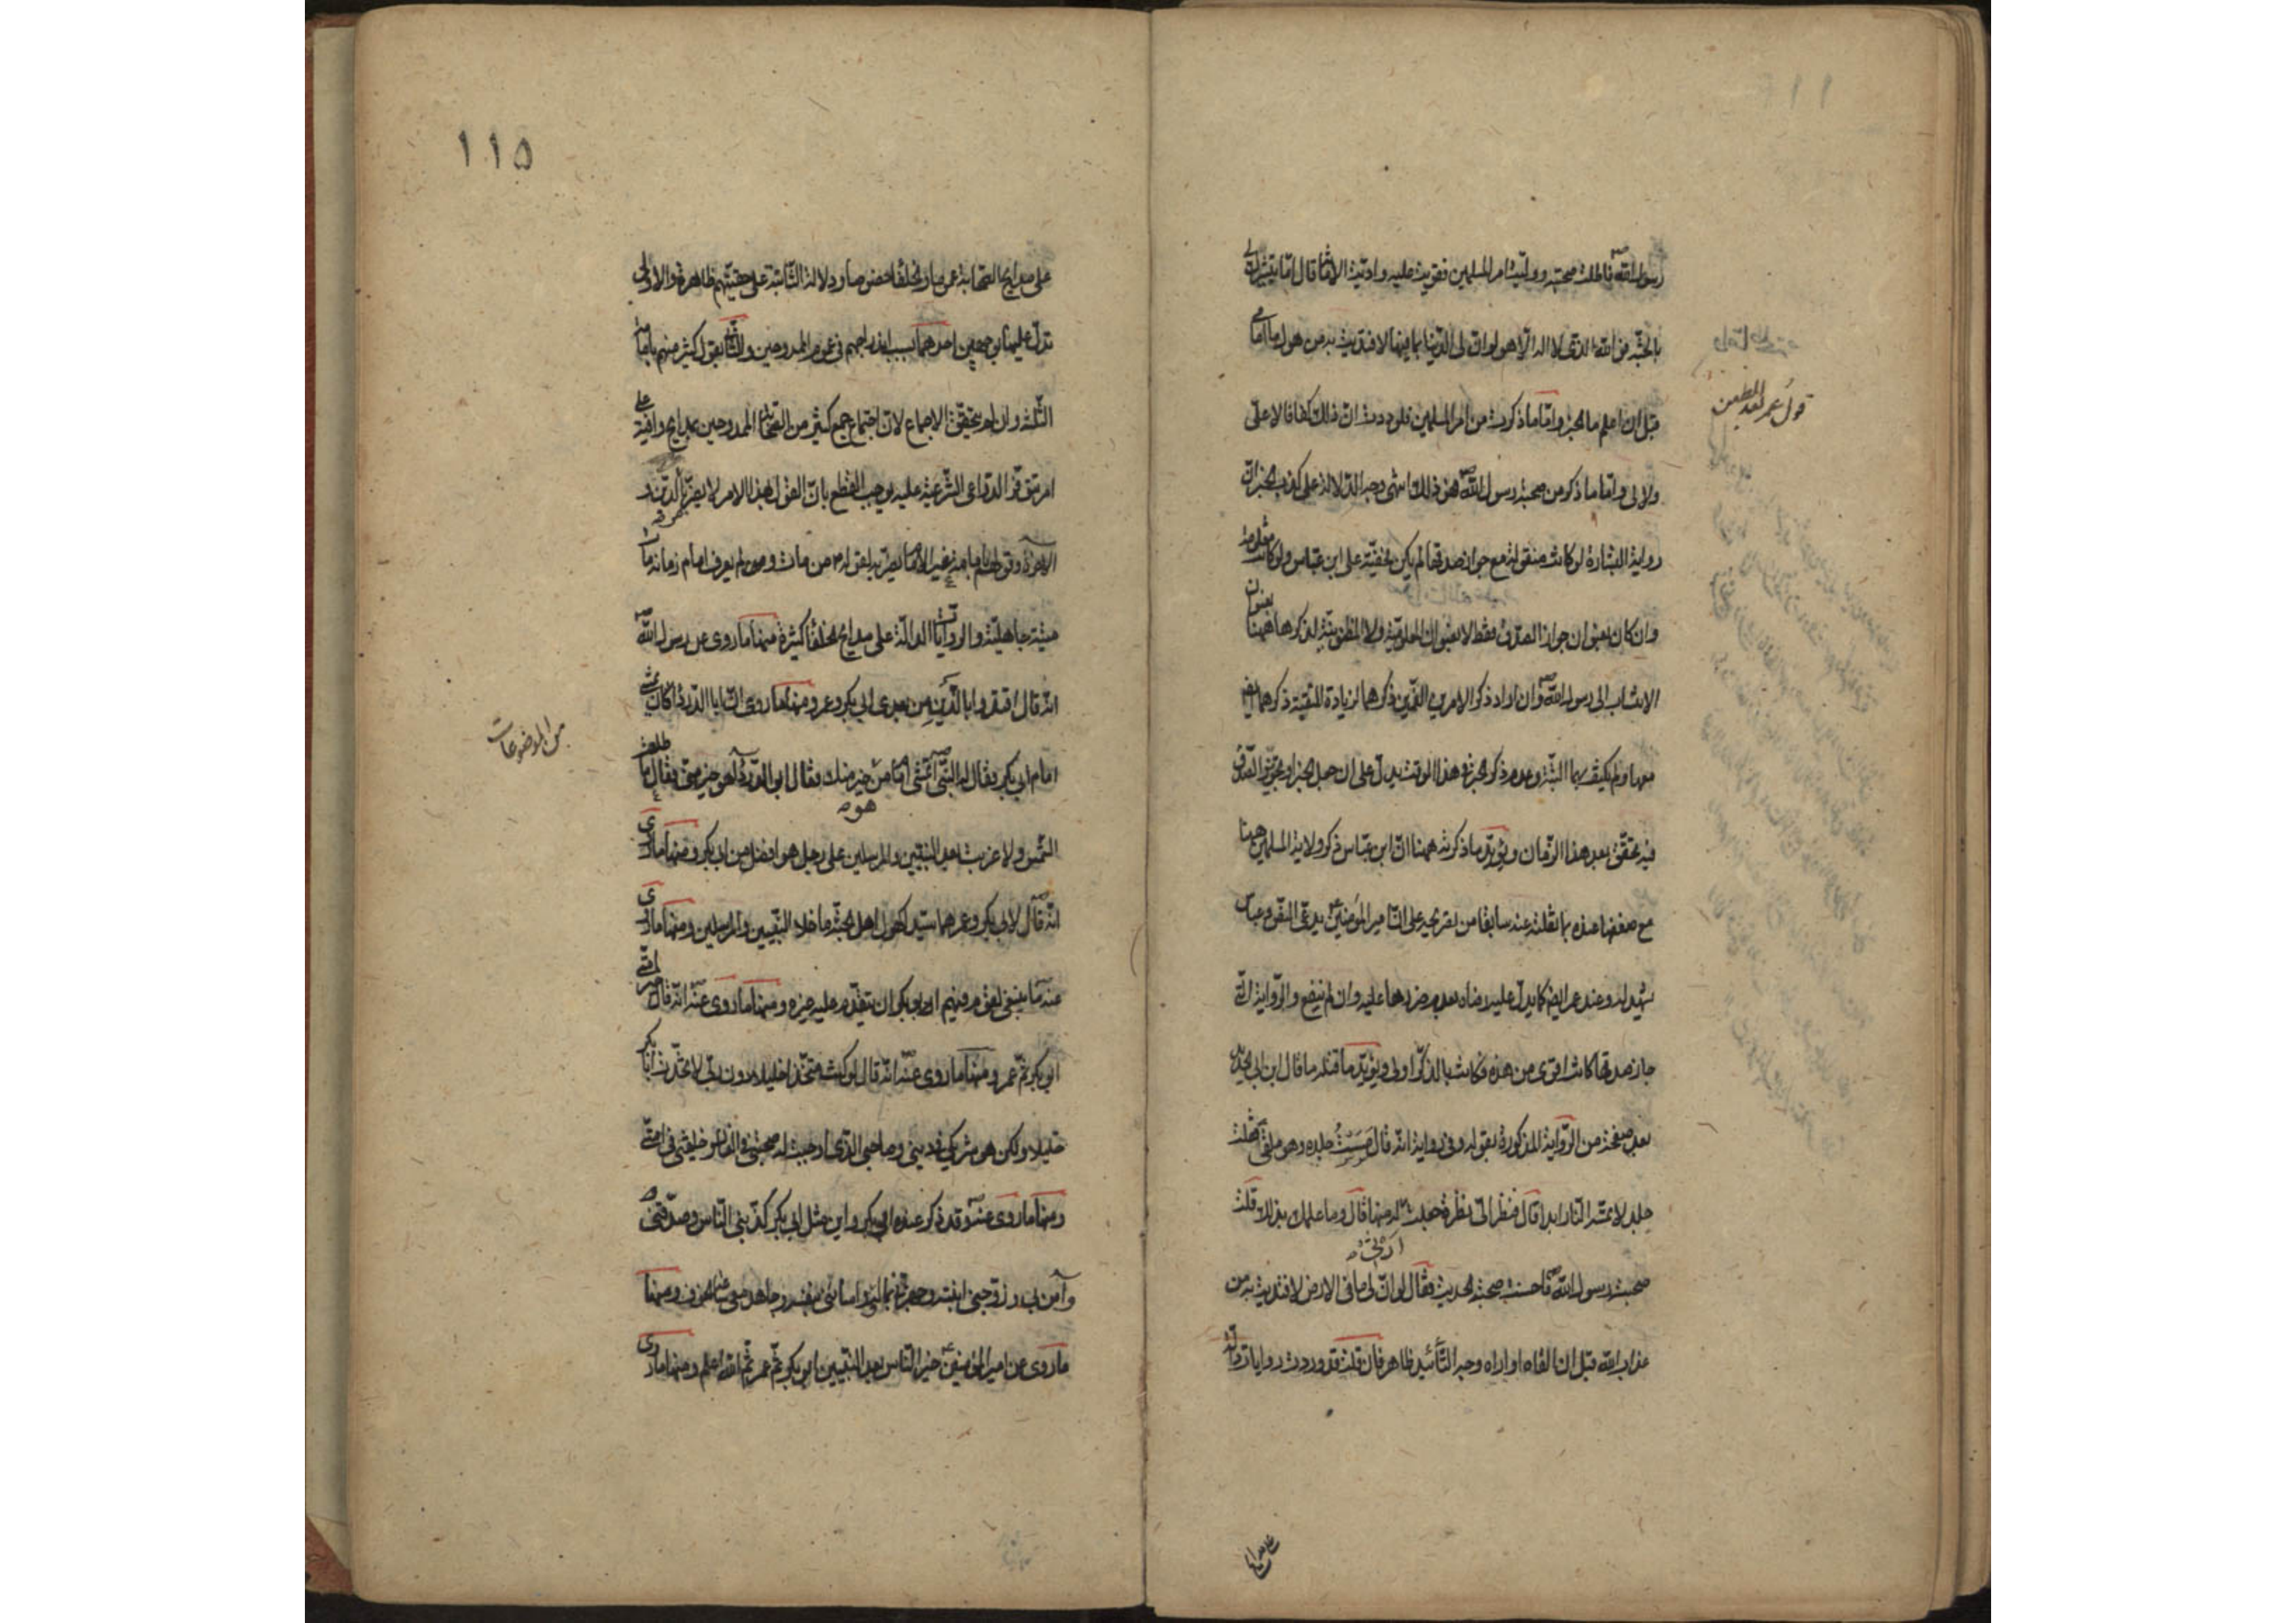 رسول الله ص فاطلت صحبته ووليت امر المسلمين فقويت عليه واديت الامانة قال اما تبشيرك لي
بالجنة فو الله الذي لا اله الا هو لو ان لي الدنيا بما فيها لافتديت به من هول ما امامي
قبل ان اعلم ما الخبر واما ما ذكرت من امر المسلمين فلوددت ان ذلك كفافا لا علي
ولا لي واما ما ذكر من صحبة رسول الله ص فهو ذلك انتهى وجه الدلالة على كذب الخبر ان
رواية البشارة لو كانت منقولة مع جواز صدقها لم يكن مخفية على ابن عباس ولو كانت معلومة
وان كان بعنوان جواز الصدق فقط لا بعنوان المعلومية ولا المظنونية لذكرها ههنا بعنوان
الانتساب الى رسول الله ص وان اراد ذكر الامرين اللذين ذكرهما لزيادة التقوية ذكرهما ايض
معها ولم يكتف بهما البتة وعدم ذكر الخبر في هذا الوقت يدل على ان جعل الخبر او تجويز الصدق
فيه تحقق بعد هذا الزمان ويؤيد ما ذكرته ههنا ان ابن عباس ذكر ولاية المسلمين ههنا
مع ضعفها عنده بما نقلته عنه سابقا من تصريحه على ان امير المؤمنين ع يدعي النص وعباس
يشهد له وعند عمر ايض كما يدل عليه رضاه بعدم ردها عليه وان لم ينفع والرواية التي
جاز صدقها كانت اقوى من هذه فكانت بالذكر اولى ويؤيد ما قلته ما قال ابن ابي الحديد
بعد صفحة من الرواية المذكورة بقوله وفي رواية انه قال مسست جلده وهو ملقى فقلت
جلد لا تمسه النار ابدا قال فنظر الي نظرة جعلت ارثي له منها قال وما علمك بذلك قلت
صحبت رسول الله ص فاحسنت صحبته الحديث فقال لو ان لي ما في الارض لافتديت به من
عذاب الله قبل ان القاه او اراه وجه التأييد ظاهر فان قلت قد وردت روايات دالة
قول عمر عند الطعن
على مدايح الصحابة عموما والخلفاء خصوصا ودلالة الثانية على حقيتهم ظاهرة والاولى
تدل عليها من جهين احدهما بسبب اندراجهم في عموم الممدوحين والثاني بقول كثير منهم بامامة
الثلثة وان لم يتحقق الاجماع لان اجتماع جمع كثير من الصحابة الممدوحين بمدايح وافية على
امر توفر الدواعي الشرعية عليه يوجب القطع بان القول بهذا الامر لا يضر بالدين و
الاخرة وقولهم بامامة غير الامام يضر به لقوله ص من مات وهو لم يعرف امام زمانه مات
ميتة جاهلية والروايات الدالة على مدايح الخلفاء كثيرة منها ما روى عن رسول الله ص
انه قال اقتدوا بالذين من بعدي ابي بكر وعمر ومنها ما روى ان ابا الدرداء كان يمشي
امام ابي بكر فقال له النبي ص اتمشي امام من هو خير منك فقال ابو الدرداء اهو خير مني فقال ما طلعت
الشمس ولا غربت بعد النبيين والمرسلين على رجل هو افضل من ابي بكر ومنها ما روى
انه ص قال لابي بكر وعمر هما سيدا كهول اهل الجنة ما خلا النبيين والمرسلين ومنها ما روى
عنه ص ما ينبغي لقوم فيهم ابو بكر ان يتقدم عليه غيره ومنها ما روى عنه ص انه قال خير امتي
ابو بكر ثم عمر ومنها ما روى عنه ص انه قال لو كنت متخذا خليلا دون ربي لاتخذت ابا بكر
خليلا ولكن هو شريكي في ديني وصاحبي الذي اوجبت له صحبتي في الغار وخليفتي في امتي
ومنها ما روى عنه ص وقد ذكر عنده ابو بكر واين مثل ابي بكر كذبني الناس وصدقني و
وآمن بي وزوجني ابنته وجهزني بماله وواساني بنفسه وجاهد معي ساعة الخوف ومنها
ما روى عن امير المؤمنين ع خير الناس بعد النبيين ابو بكر ثم عمر ثم الله اعلم ومنها ما روى
من الموضوعات
١١٥